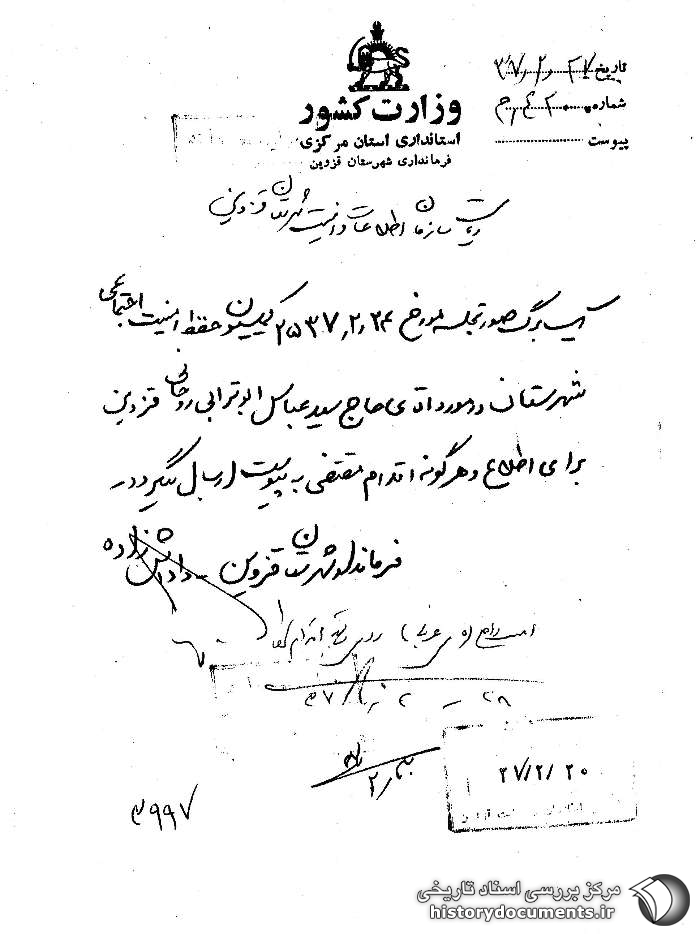 تاریخ ۳۷/۲/۲۷
شماره
پیوست
وزارت کشور
استانداری استان مرکزی
فرمانداری شهرستان قزوین
ریاست سازمان اطلاعات و امنیت شهرستان قزوین
یک برگ صورتجلسه مورخ ۲۵۳۷/۲/۲۴ کمیسیون حفظ امنیت اجتماعی
شهرستان در مورد آقای حاج سید عباس ابوترابی روحانی قزوین
برای اطلاع و هرگونه اقدام مقتضی به پیوست ارسال میگردد
فرماندار شهرستان قزوین - دادا‌ش زاده
اقدام
۲۸ - ۲ - ۳۷
۲۷/۲/۲۰
۳۹۹۷
مرکز بررسی اسناد تاریخی
historydocuments.ir